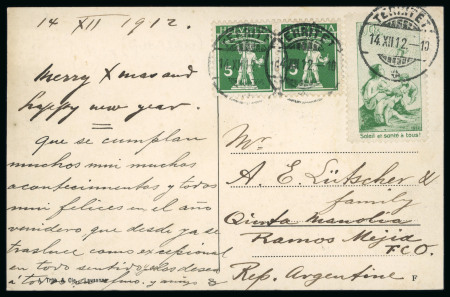 14 XII 1912.
Merry Xmas and
happy new year.
Que se cumplan
muchos muchos
acontecimientos y todos
felices en el año
venidero, que desde ya se
trasluce como excepcional
en todo sentido, les desea
HELVETIA HELVETIA
5 5
TERRITET
14.XII.12.-10
Soleil et santé à tous!
Mr.
A. E. Lütscher &
family
Quinta Manolia
Ramos Mejia
FCO.
Rep. Argentine
F